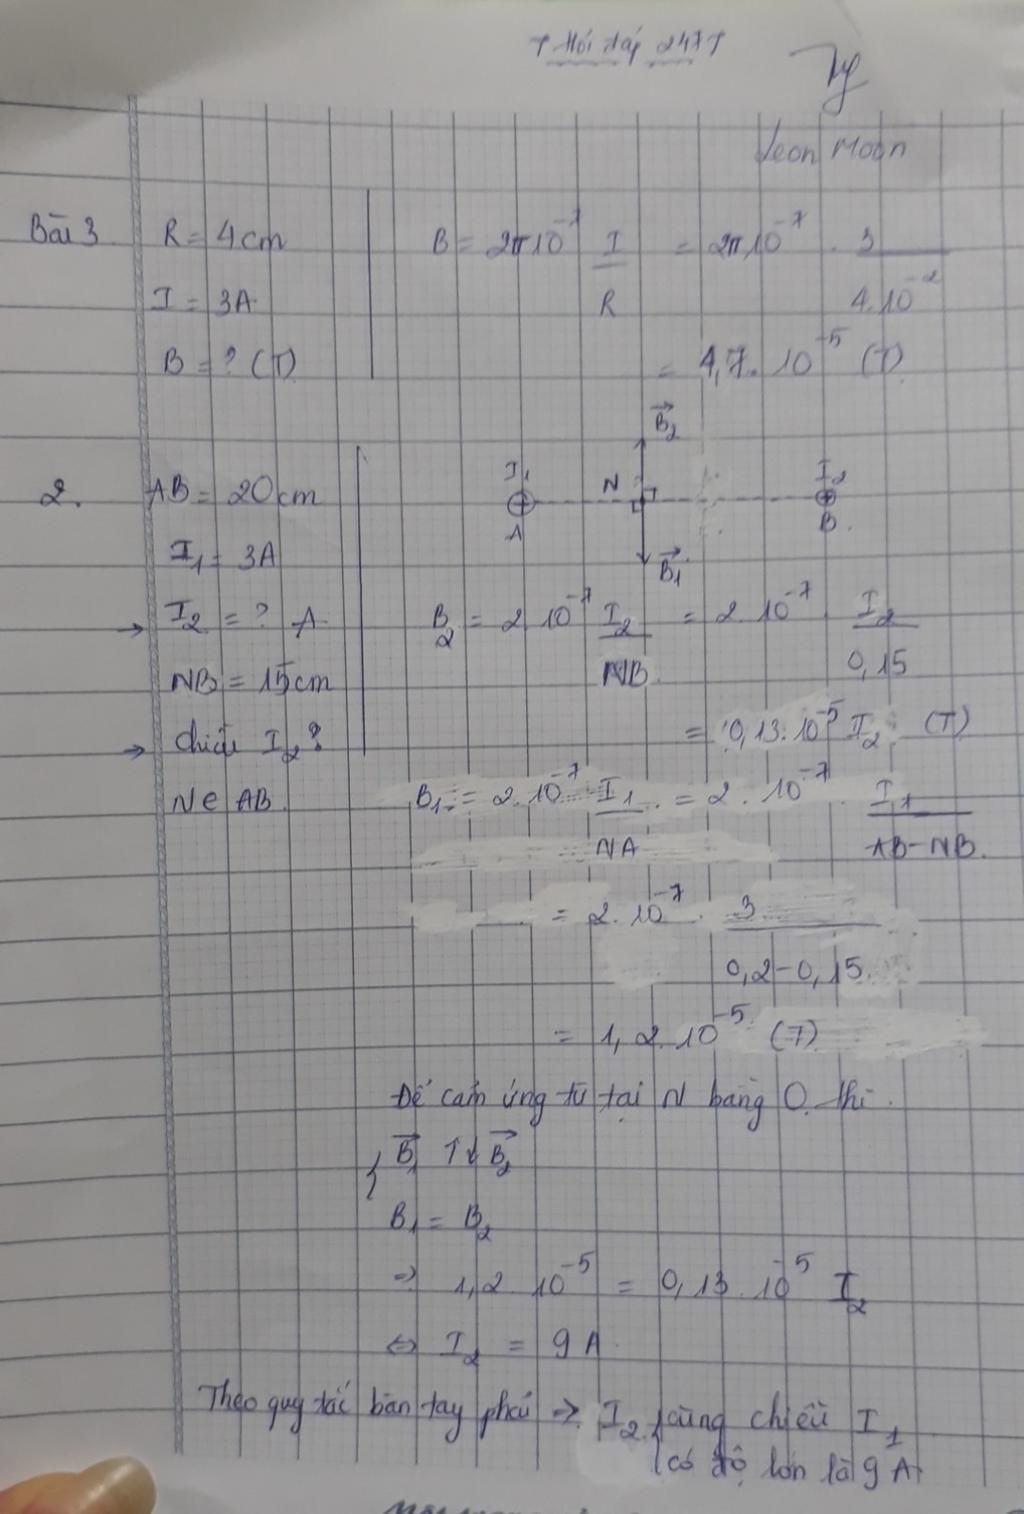 Hỏi đáp 247
Ty
Yeon Moon
Bài 3 R = 4cm B = 2π10⁻⁷ I/R = 2π.10⁻⁷ . 3/4.10⁻²
I = 3A
B = ? (T) = 4,7. 10⁻⁵ (T)
2. AB = 20cm I₁ A N B₂ B₁ I₂ B
I₁ = 3A
→ I₂ = ? A B₂ = 2 10⁻⁷ I₂/NB = 2. 10⁻⁷ I₂/0,15
NB = 15cm
→ chiều I₂? = 0,13.10⁻⁵ I₂ (T)
N∈ AB B₁ = 2.10⁻⁷ I₁/NA = 2. 10⁻⁷. I₁/AB-NB.
= 2.10⁻⁷. 3/0,2-0,15
= 1,2.10⁻⁵ (T)
Để cảm ứng từ tại N bằng 0 thì
{ B₁ ↑↓ B₂
B₁ = B₂
⇒ 1,2. 10⁻⁵ = 0,13. 10⁻⁵ I₂
⇔ I₂ = 9A.
Theo quy tắc bàn tay phải ⇒ I₂ { cùng chiều I₁
có độ lớn là 9A